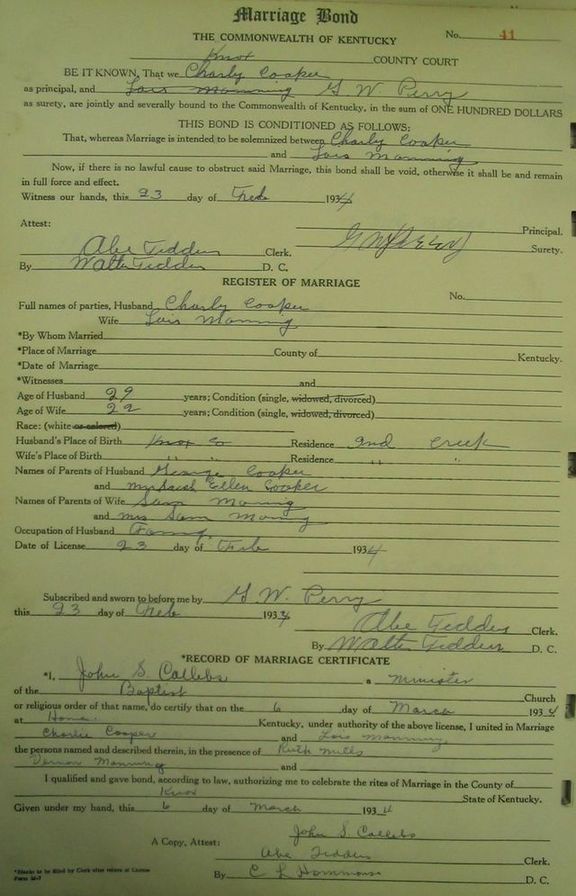 Marriage Bond
THE COMMONWEALTH OF KENTUCKY No. 41
Knox COUNTY COURT
BE IT KNOWN, That we Charly Cooper
as principal, and Lois Manning G W. Perry
as surety, are jointly and severally bound to the Commonwealth of Kentucky, in the sum of ONE HUNDRED DOLLARS
THIS BOND IS CONDITIONED AS FOLLOWS:
That, whereas Marriage is intended to be solemnized between Charly Cooper
and Lois Manning
Now, if there is no lawful cause to obstruct said Marriage, this bond shall be void, otherwise it shall be and remain
in full force and effect.
Witness our hands, this 23 day of Feb 1934
Attest: Principal.
Abe Tedders Clerk. G W Perry Surety.
By Walter Tedders D. C.
REGISTER OF MARRIAGE
No.
Full names of parties, Husband Charly Cooper
Wife Lois Manning
*By Whom Married
*Place of Marriage County of Kentucky.
*Date of Marriage
*Witnesses and
Age of Husband 29 years; Condition (single, widowed, divorced)
Age of Wife 22 years; Condition (single, widowed, divorced)
Race: (white or colored)
Husband's Place of Birth Knox Co Residence 2nd Creek
Wife's Place of Birth " " Residence " "
Names of Parents of Husband George Cooper
and Ellen Cooper
Names of Parents of Wife Sam Maning
and Mrs Sam Maning
Occupation of Husband
Date of License 23 day of Feb 1934
Subscribed and sworn to before me by G W. Perry
this 23 day of Feb 1934
Abe Tedders Clerk.
By Walter Tedders D. C.
*RECORD OF MARRIAGE CERTIFICATE
*I, John S. Callebs a Minister
of the Baptist Church
or religious order of that name, do certify that on the 6 day of March 1934
at Home. Kentucky, under authority of the above license, I united in Marriage
Charlie Cooper and Lois Manning
the persons named and described therein, in the presence of Ruth Mills
Vernon Manning and
I qualified and gave bond, according to law, authorizing me to celebrate the rites of Marriage in the County of
Knox State of Kentucky.
Given under my hand, this 6 day of March 1934
John S. Callebs
A Copy, Attest: Abe Tedders Clerk.
By C L Hammons D. C.
*Blanks to be filled by Clerk after return of License